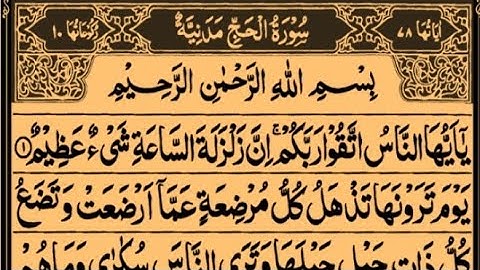 اٰيَاتُهَا ٧٨ سُوْرَةُ الْحَجِّ مَدَنِيَّةٌ رُكُوْعَاتُهَا ١٠
بِسْمِ اللّٰهِ الرَّحْمٰنِ الرَّحِيْمِ
يٰۤاَيُّهَا النَّاسُ اتَّقُوْا رَبَّكُمْ ۚ اِنَّ زَلْزَلَةَ السَّاعَةِ شَیْءٌ عَظِيْمٌ ۝١
يَوْمَ تَرَوْنَهَا تَذْهَلُ كُلُّ مُرْضِعَةٍ عَمَّاۤ اَرْضَعَتْ وَ تَضَعُ
كُلُّ ذَاتِ حَمْلٍ حَمْلَهَا وَ تَرَى النَّاسَ سُكٰرٰى وَ مَا هُمْ